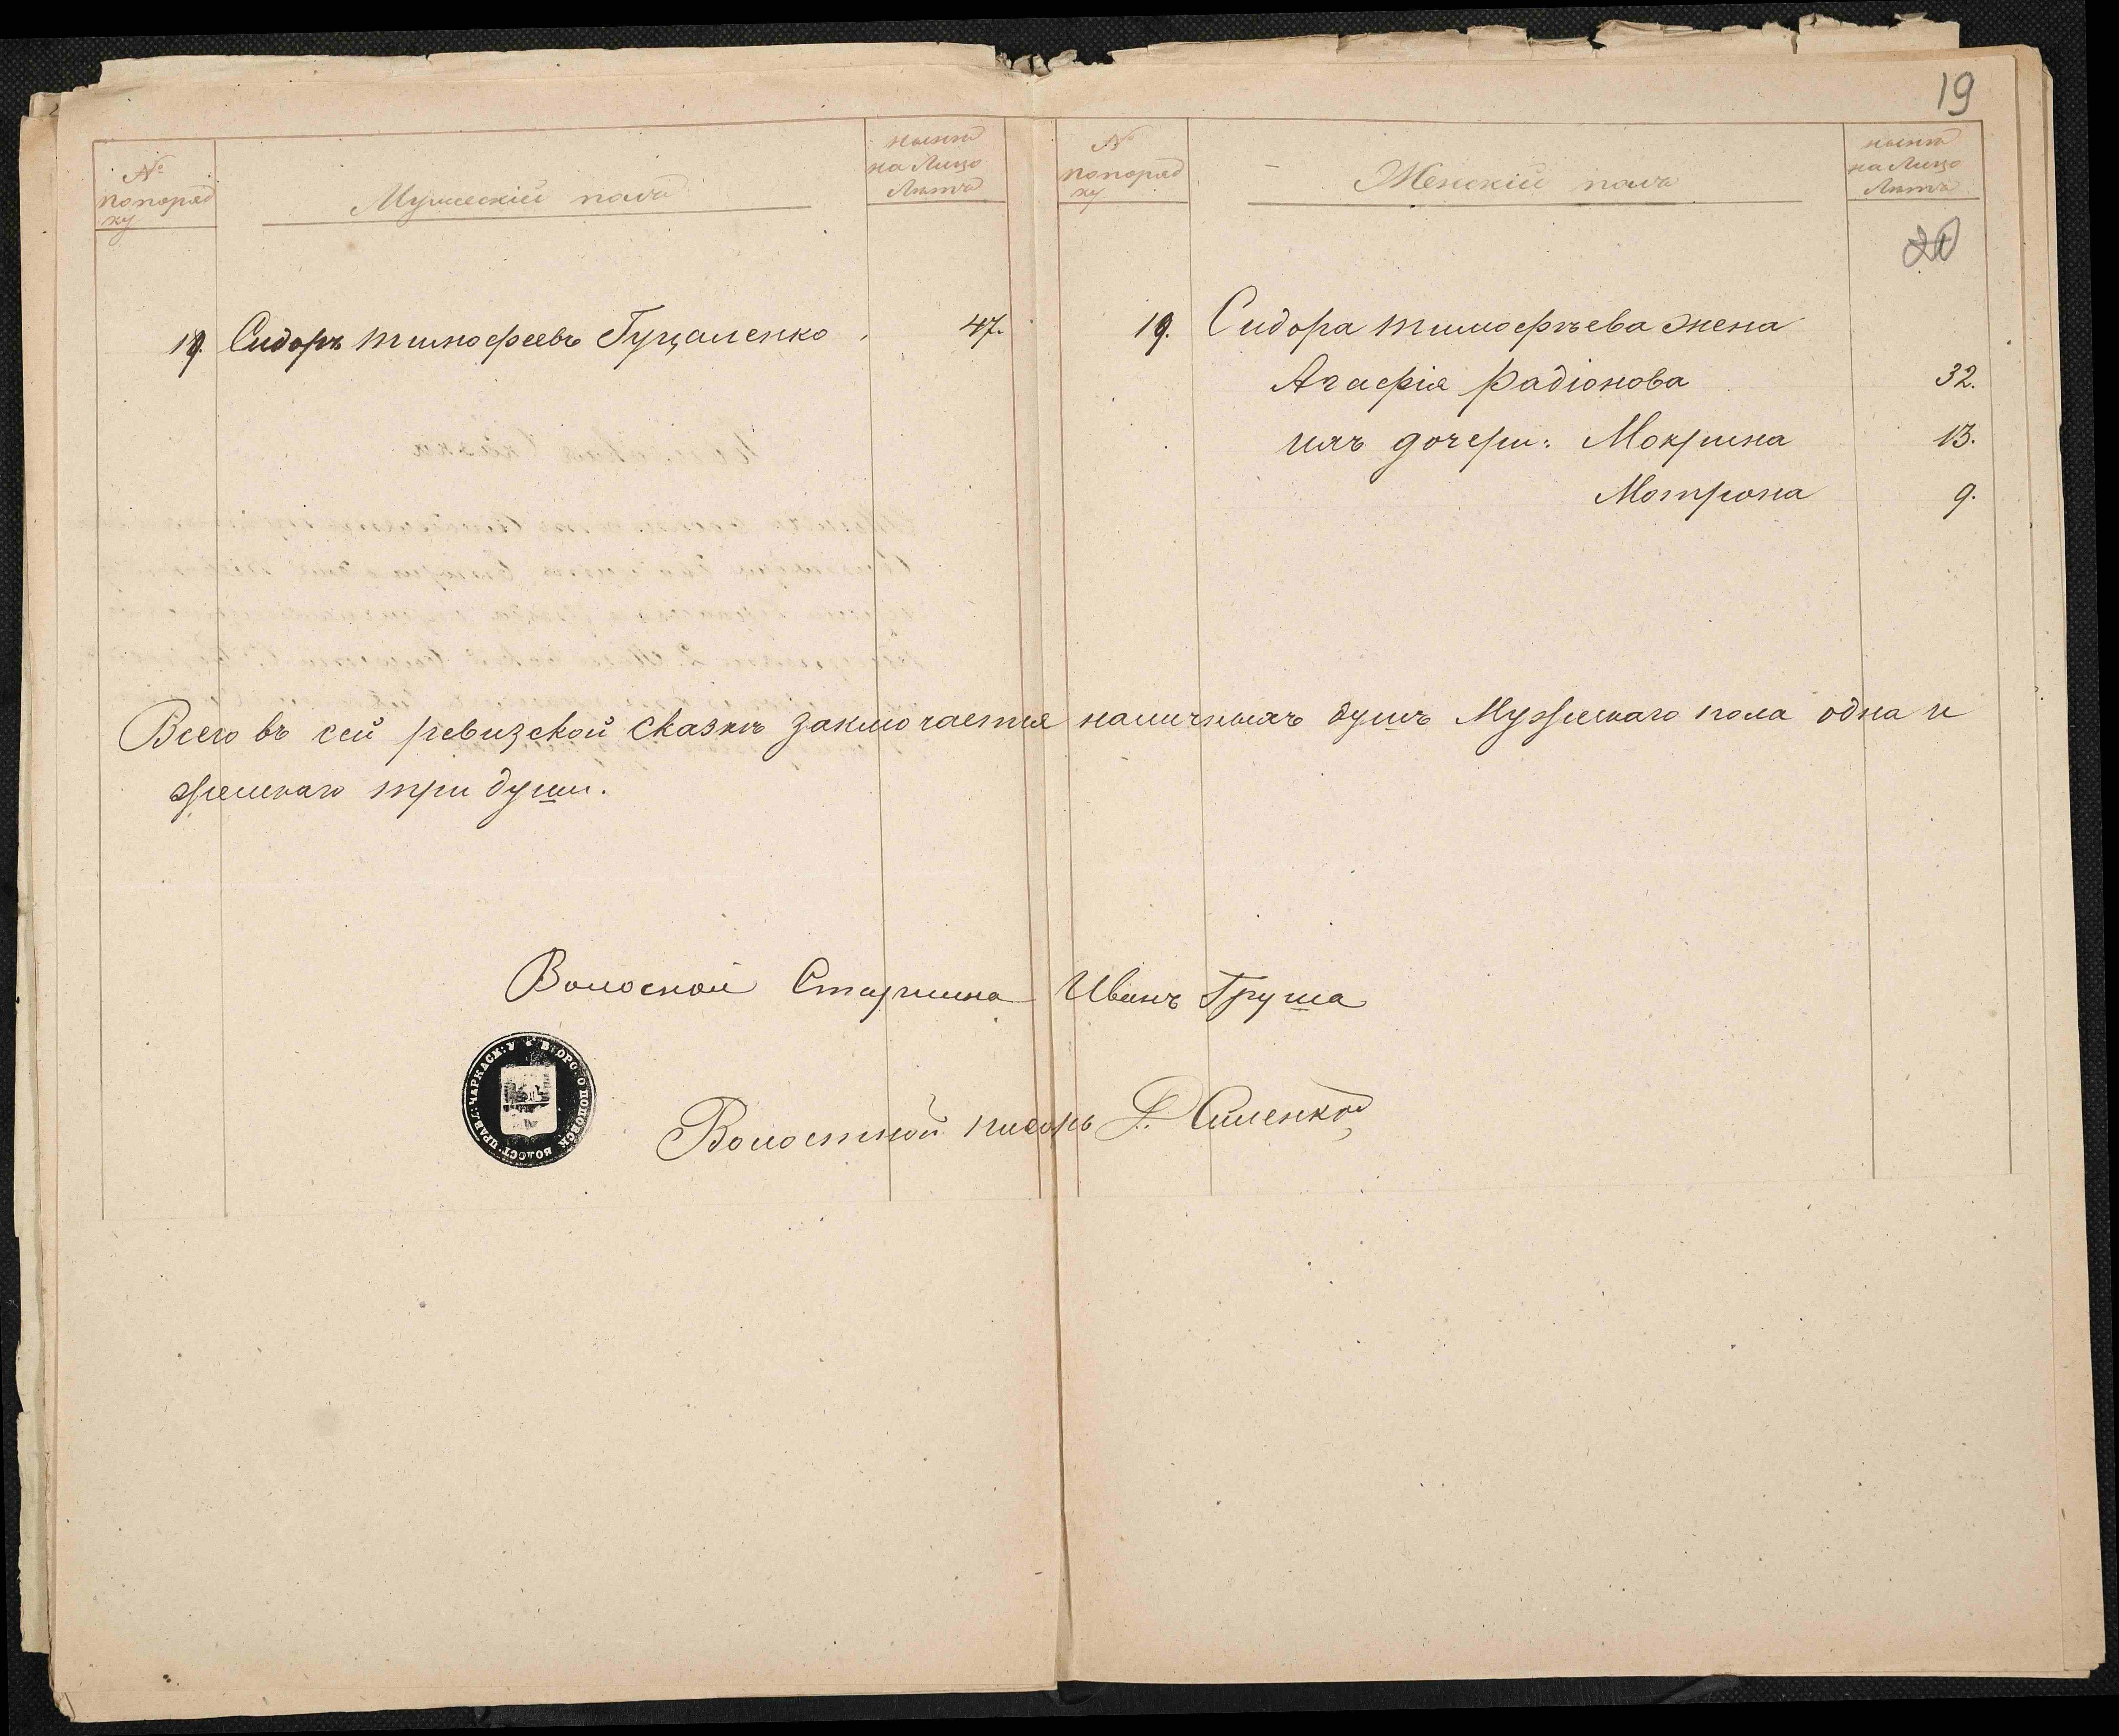 19
№ попоряд ку
Мужескій полъ
нынѣ на Лицо Лѣтъ
№ попоряд ку
Женскій полъ
нынѣ на Лицо Лѣтъ
19. Сидоръ Тимофеевъ Гуцаленко 47.
19. Сидора Тимофѣева жена
Агафія Радіонова 32.
ихъ дочери: Мокрина 13.
Мотрона 9.
Всего въ сей ревизской сказкѣ заключается наличныхъ душъ Мужескаго пола одна и
женскаго три души.
Волосной Старшина Иванъ Груша
Волостной писарь